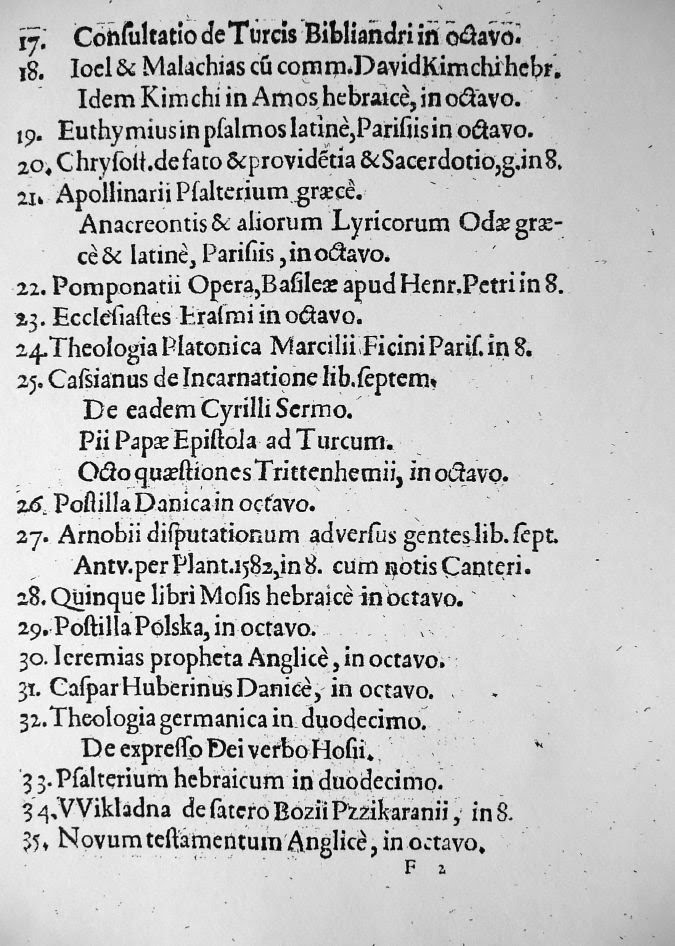 17. Conſultatio de Turcis Bibliandri in octavo.
18. Ioel & Malachias cū comm. David Kimchi hebr.
Idem Kimchi in Amos hebraicè, in octavo.
19. Euthymius in pſalmos latinè, Pariſiis in octavo.
20. Chryſoſt. de fato & providētia & Sacerdotio, g. in 8.
21. Apollinarii Pſalterium græcè.
Anacreontis & aliorum Lyricorum Odæ græ-
cè & latinè, Pariſiis, in octavo.
22. Pomponatii Opera, Baſileæ apud Henr. Petri in 8.
23. Eccleſiaſtes Eraſmi in octavo.
24. Theologia Platonica Marcilii Ficini Pariſ. in 8.
25. Caſsianus de Incarnatione lib. ſeptem.
De eadem Cyrilli Sermo.
Pii Papæ Epiſtola ad Turcum.
Octo quæſtiones Trittenhemii, in octavo.
26. Poſtilla Danica in octavo.
27. Arnobii diſputationum adverſus gentes lib. ſept.
Antv. per Plant. 1582, in 8. cum notis Canteri.
28. Quinque libri Moſis hebraicè in octavo.
29. Poſtilla Polska, in octavo.
30. Ieremias propheta Anglicè, in octavo.
31. Caſpar Huberinus Danicè, in octavo.
32. Theologia germanica in duodecimo.
De expreſſo Dei verbo Hoſii.
33. Pſalterium hebraicum in duodecimo.
34. VVikladna de ſatero Bozii Pzzikaranii, in 8.
35. Novum teſtamentum Anglicè, in octavo.
F 2